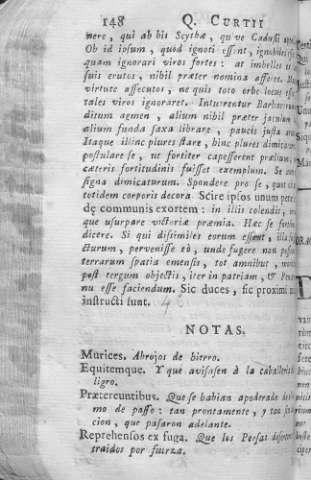 148 Q. CURTII
nere, qui ab his Scythæ, qu ve Cadusii
Ob id ipsum, quod ignoti essent, ignobiles
quam ignorari viros fortes: at imbelles
suis erutos, nihil præter nomina afferre.
virtute assecutos, ne quis toto orbe locus
tales viros ignoraret. Intuerentur Barbarorum
ditum agmen, alium nihil præter jaculum
alium funda saxa librare, paucis justa
Itaque illinc plures stare, hinc plures dimica
postulare se, ut fortiter capesserent prælium,
cæteris fortitudinis fuisset exemplum. Se
signa dimicaturum. Spondere pro se, quot
totidem corporis decora. Scire ipsos unum
de communis exortem: in illis colendis,
que usurpare victoriæ præmia. Hæc se
dicere. Si qui dissimiles eorum essent, illa
cturum, pervenisse eò, unde fugere non
terrarum spatia emensis, tot amnibus,
post tergum objectis, iter in patriam, &
nu esse faciendum. Sic duces, sic proximi
instructi sunt.
NOTAS.
Murices. Abrojos de hierro.
Equitemque. Y que avisasen à la caballeria
ligro.
Prætereuntibus. Que se habian apoderado
mo de passo: tan prontamente, y
cion, que pasaron adelante.
Reprehensos ex fuga. Que los Persas
traidos por fuerza.